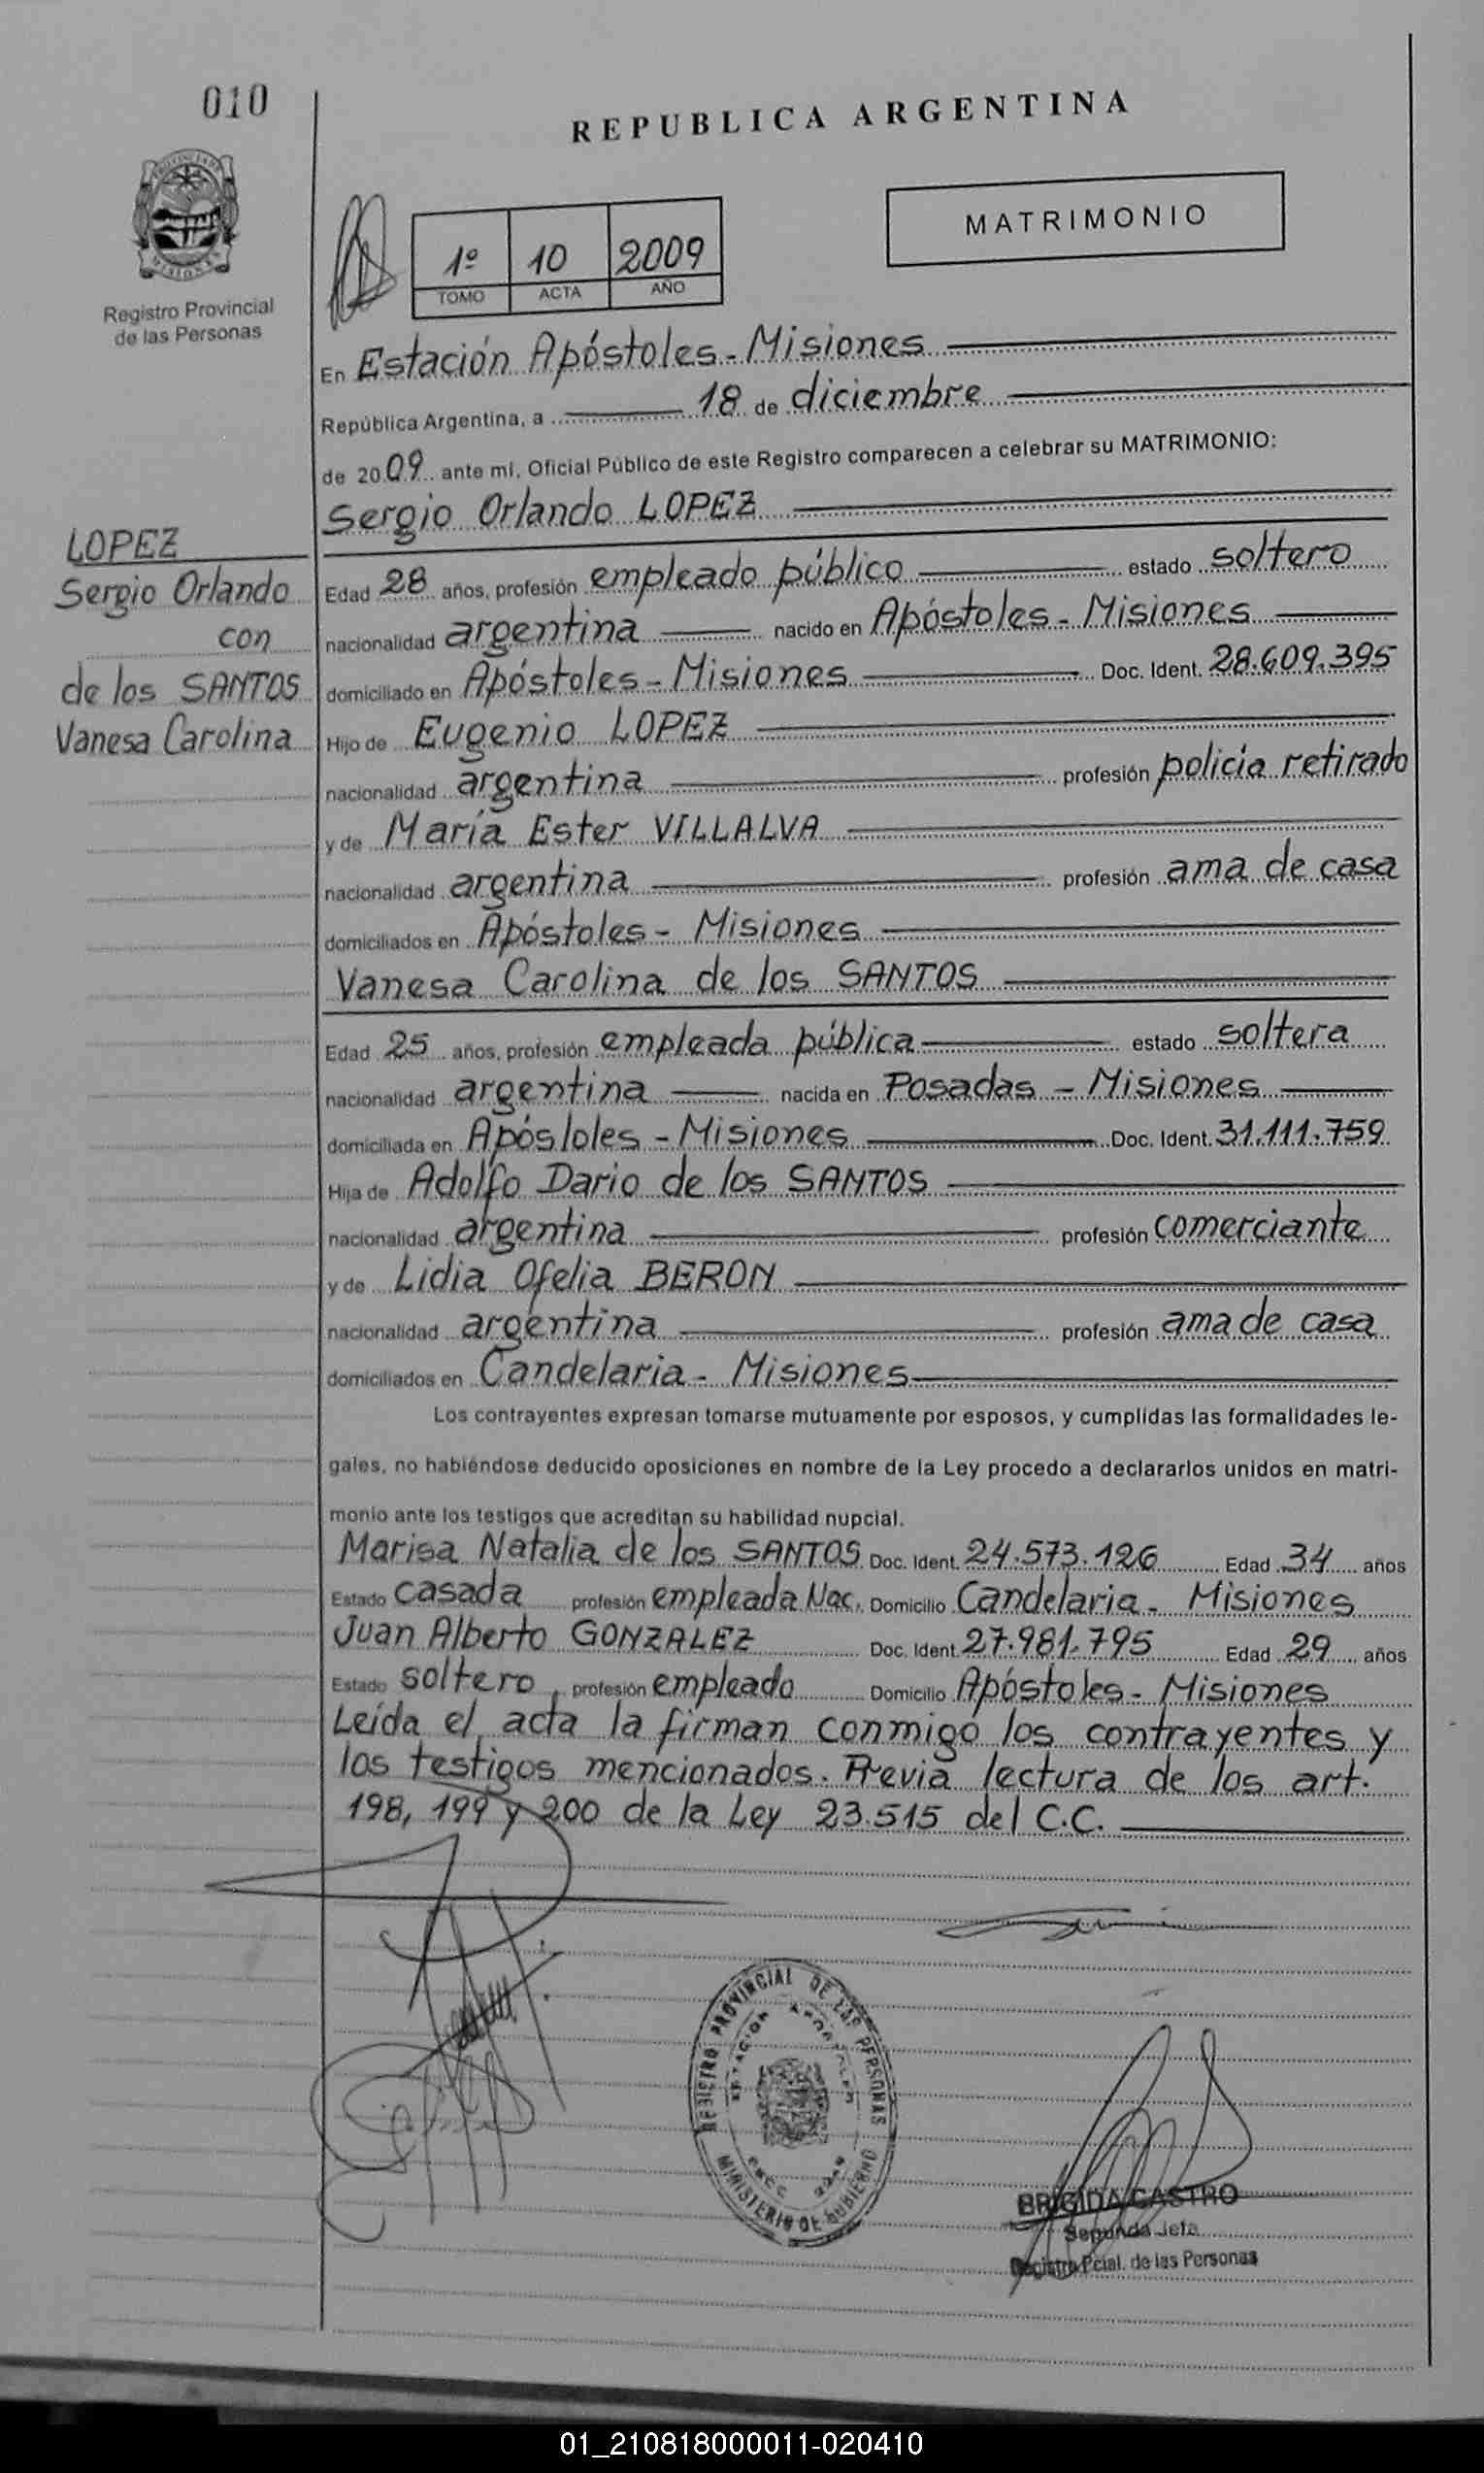 010
REPUBLICA ARGENTINA
MATRIMONIO
1º 10 2009
TOMO ACTA AÑO
MISIONES
Registro Provincial
de las Personas
En Estación Apóstoles - Misiones
República Argentina, a 18 de diciembre
de 2009 ante mí, Oficial Público de este Registro comparecen a celebrar su MATRIMONIO:
Sergio Orlando LOPEZ
LOPEZ
Sergio Orlando
con
de los SANTOS
Vanesa Carolina
Edad 28 años, profesión empleado público estado soltero
nacionalidad argentina nacido en Apóstoles - Misiones
domiciliado en Apóstoles - Misiones Doc. Ident. 28.609.395
Hijo de Eugenio LOPEZ
nacionalidad argentina profesión policía retirado
y de María Ester VILLALVA
nacionalidad argentina profesión ama de casa
domiciliados en Apóstoles - Misiones
Vanesa Carolina de los SANTOS
Edad 25 años, profesión empleada pública estado soltera
nacionalidad argentina nacida en Posadas - Misiones
domiciliada en Apóstoles - Misiones Doc. Ident. 31.111.759
Hija de Adolfo Dario de los SANTOS
nacionalidad argentina profesión comerciante
y de Lidia Ofelia BERON
nacionalidad argentina profesión ama de casa
domiciliados en Candelaria - Misiones
Los contrayentes expresan tomarse mutuamente por esposos, y cumplidas las formalidades le-
gales, no habiéndose deducido oposiciones en nombre de la Ley procedo a declararlos unidos en matri-
monio ante los testigos que acreditan su habilidad nupcial.
Marisa Natalia de los SANTOS Doc. Ident. 24.573.126 Edad 34 años
Estado casada profesión empleada Nac. Domicilio Candelaria - Misiones
Juan Alberto GONZALEZ Doc. Ident. 27.981.795 Edad 29 años
Estado soltero, profesión empleado Domicilio Apóstoles - Misiones
Leída el acta la firman conmigo los contrayentes y
los testigos mencionados. Previa lectura de los art.
198, 199 y 200 de la Ley 23.515 del C.C.
REGISTRO PROVINCIAL DE LAS PERSONAS
ESTACION APOSTOLES
MINISTERIO DE GOBIERNO
BRIGIDA CASTRO
Segunda Jefa
Registro Pcial. de las Personas
01_210818000011-020410